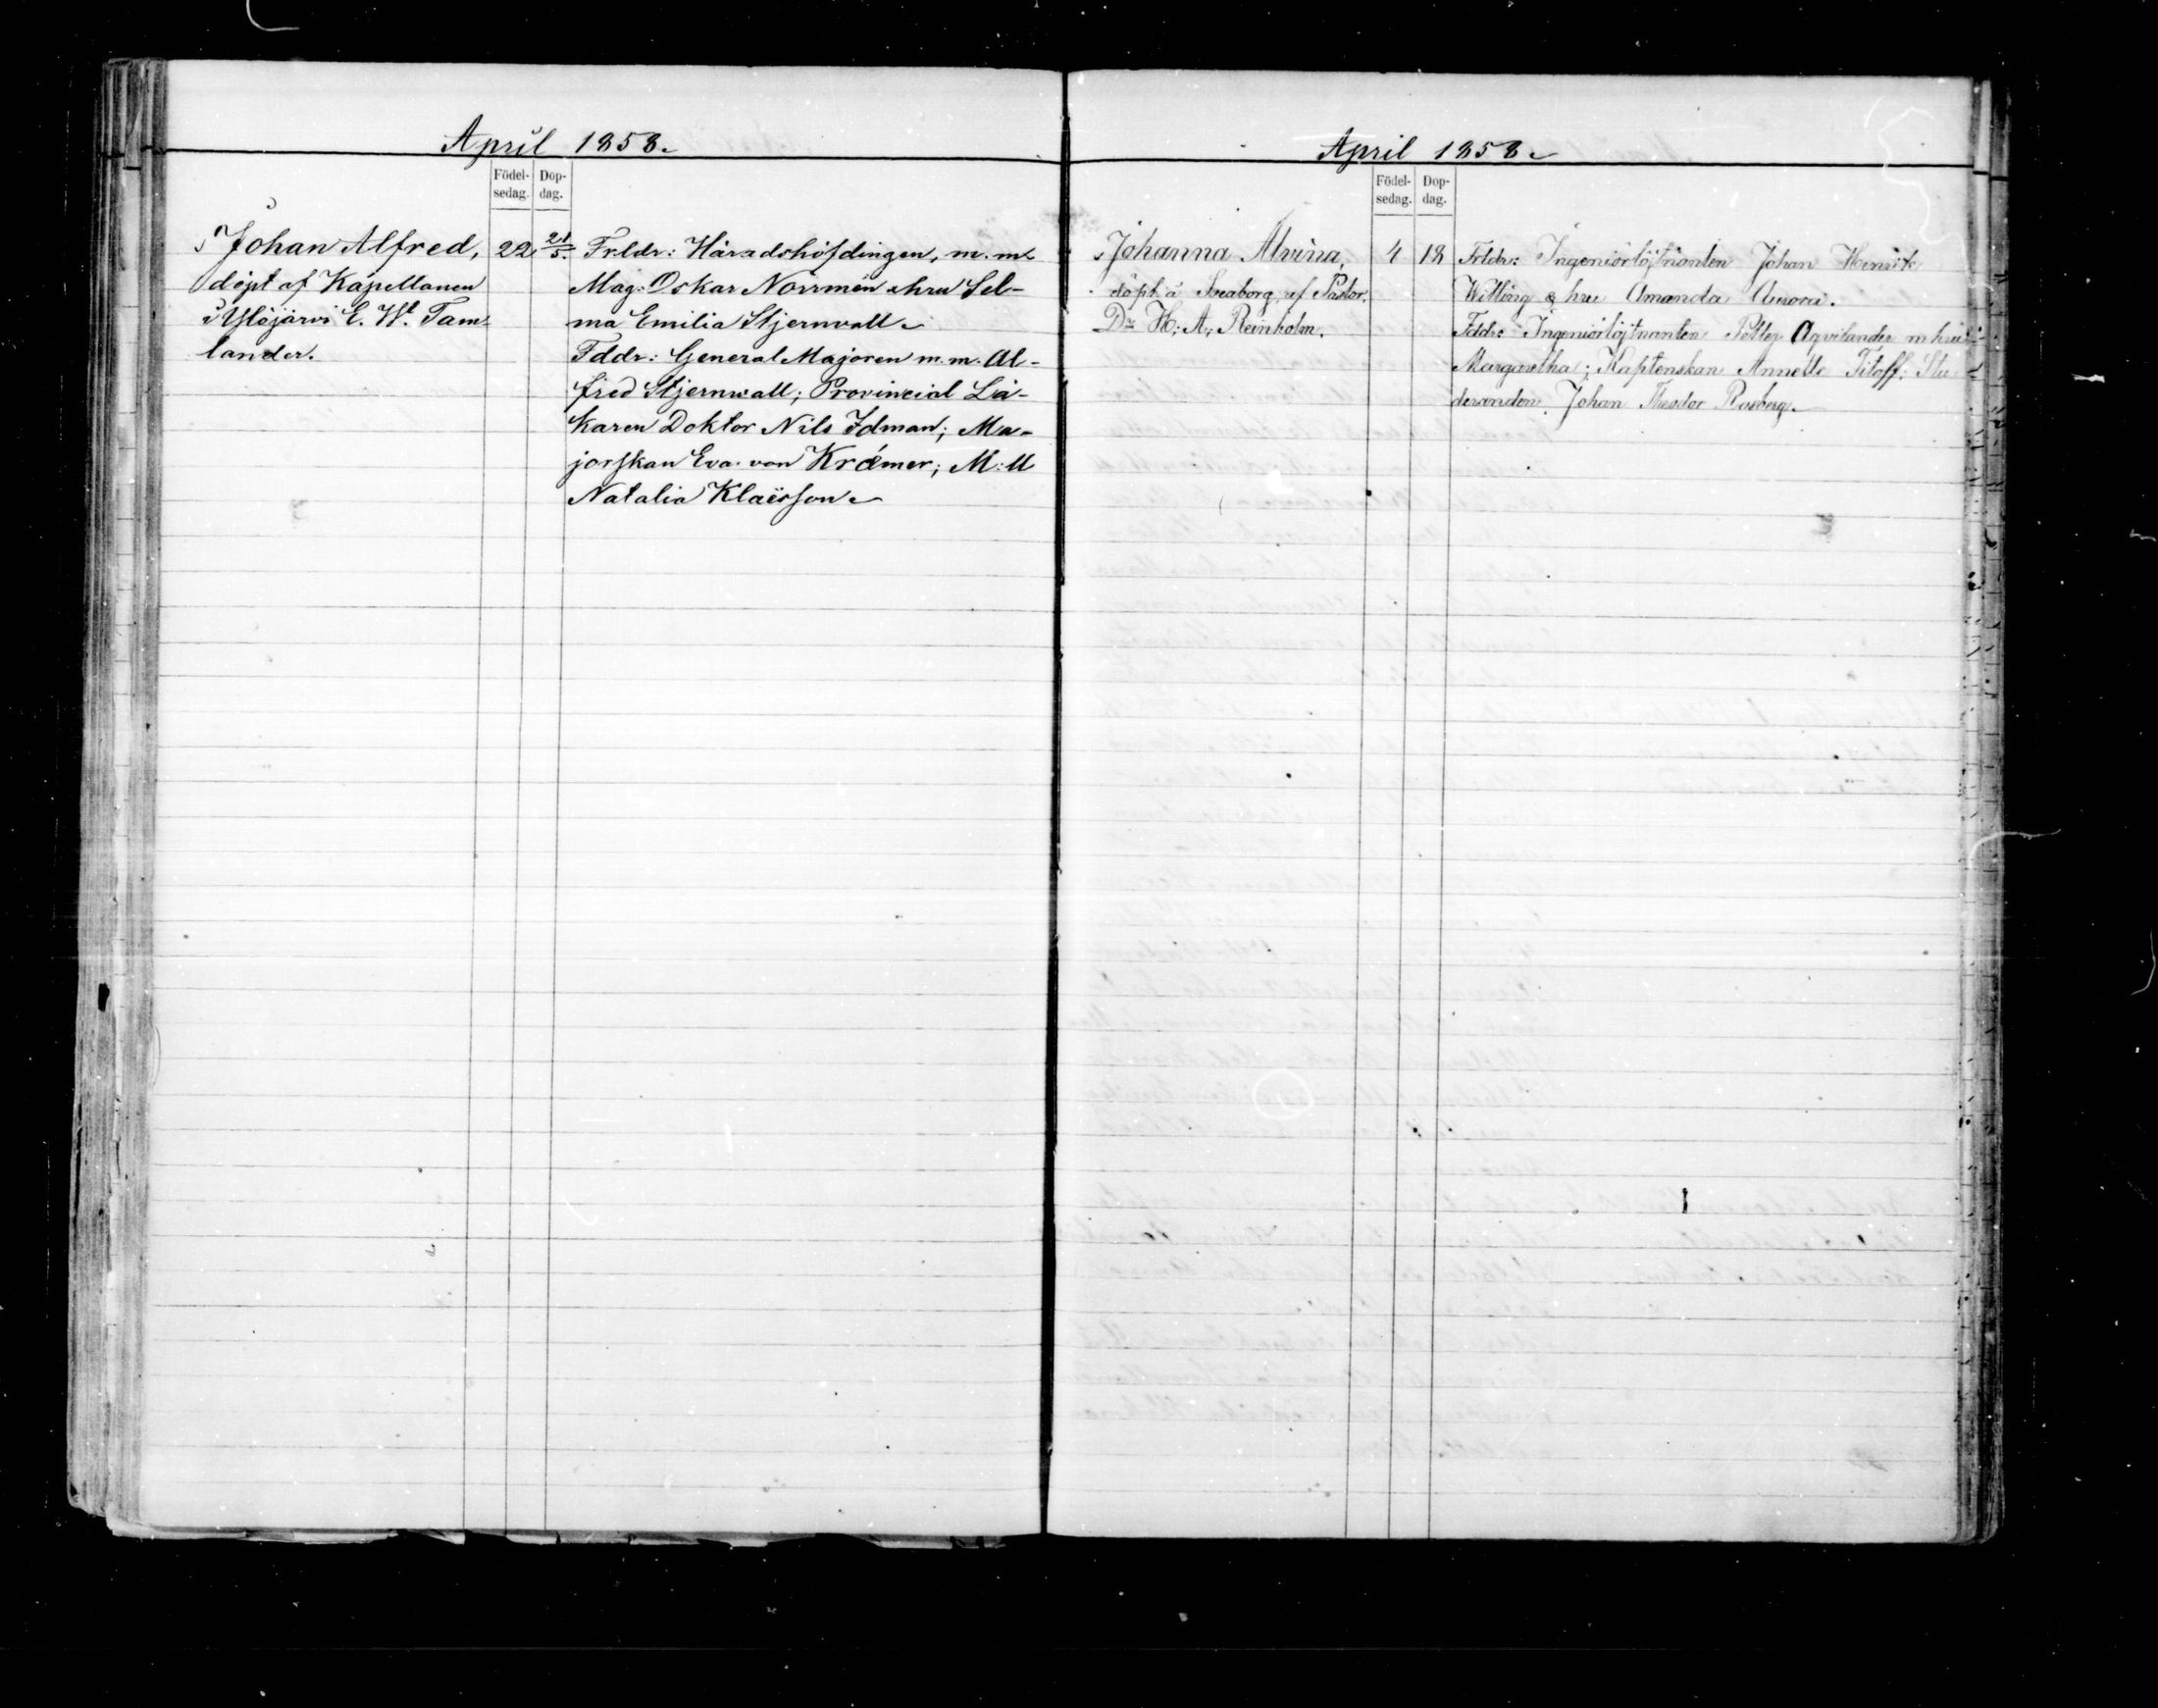 April 1858.
Födel-
sedag.
Dop-
dag.
Johan Alfred,
döpt af Kapellanen
i Ylöjärvi E. W. Tam-
lander.
22
21/5.
Frldr: Häradshöfdingen, m. m.
Mag. Oskar Norrmén & hru Sel-
ma Emilia Stjernvall.
Fddr: General Majoren m. m. Al-
fred Stjernvall; Provincial Lä-
karen Doktor Nils Idman; Ma-
jorskan Eva von Kræmer; M:ll
Natalia Klaësson.
April 1858.
Födel-
sedag.
Dop-
dag.
Johanna Alvina,
döpt å Sveaborg af Pastor,
Dr H: A: Reinholm.
4
18
Frldr: Ingeniörlöjtnanten Johan Henrik
Willing & hru Amanda Aurora.
Fddr: Ingeniörlöjtnanten Petter Aqvilander m hru
Margaretha; Kaptenskan Annette Titoff: Stu-
deranden Johan Theodor Rosberg.